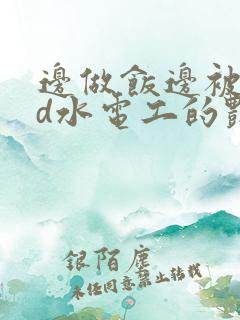 邊做飯邊被
d水電工的
銀陌塵
未经同意禁止转载